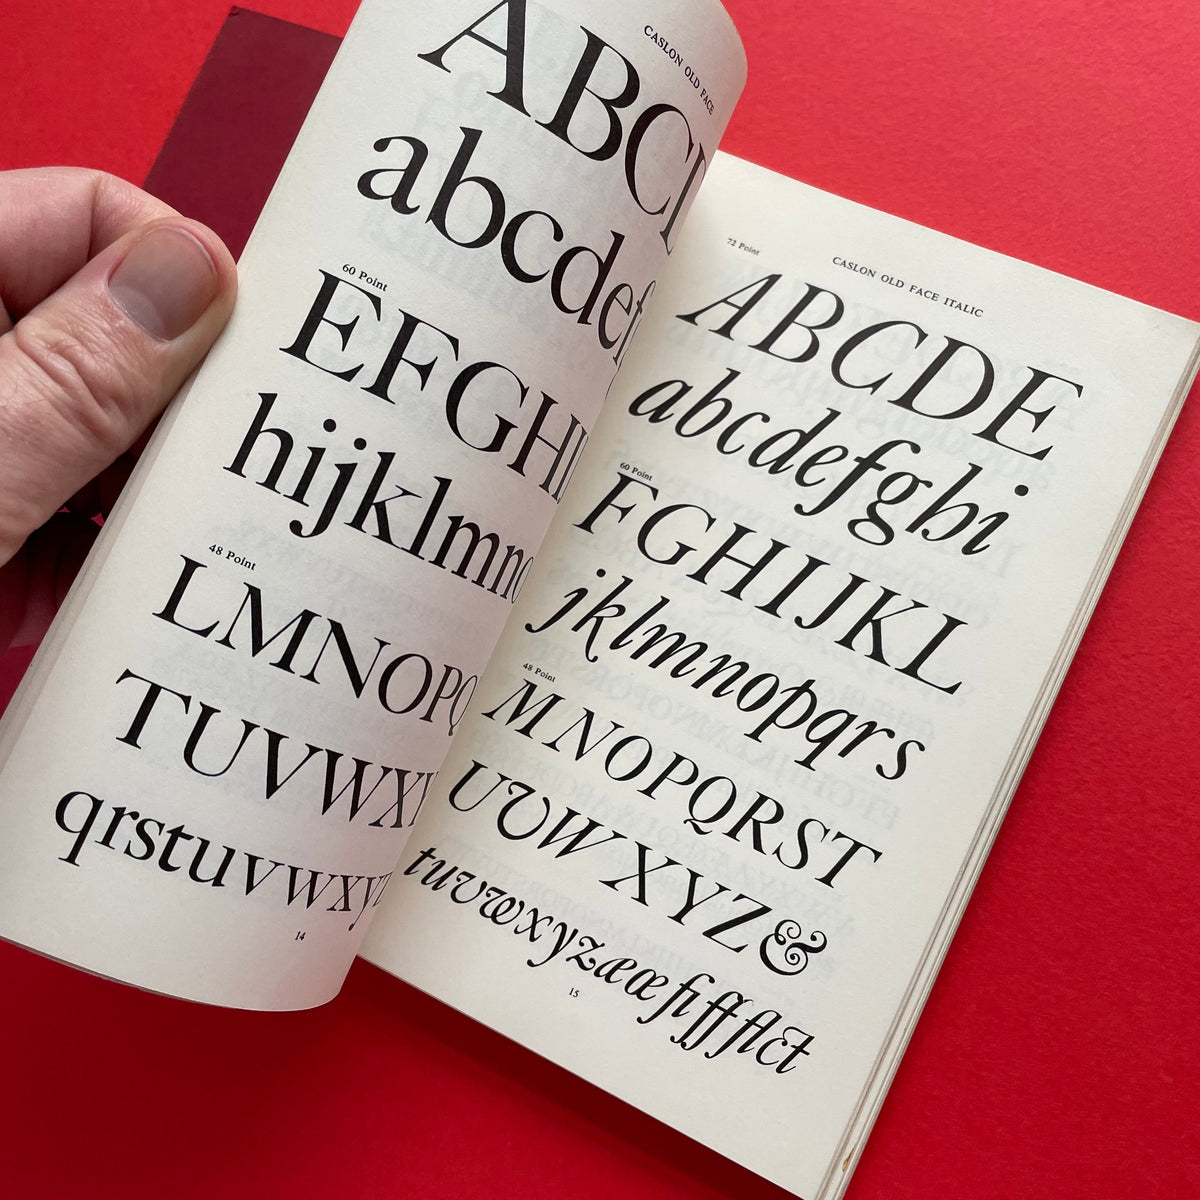 CASLON OLD FACE
ABCD
abcdef
60 Point
EFGHI
hijklmno
48 Point
LMNOPQ
TUVWXY
qrstuvwxyz
14
72 Point
CASLON OLD FACE ITALIC
ABCDE
abcdefghi
60 Point
FGHIJKL
jklmnopqrs
48 Point
MNOPQRST
UVWXYZ&
tuvwxyzæœfiffflct
15